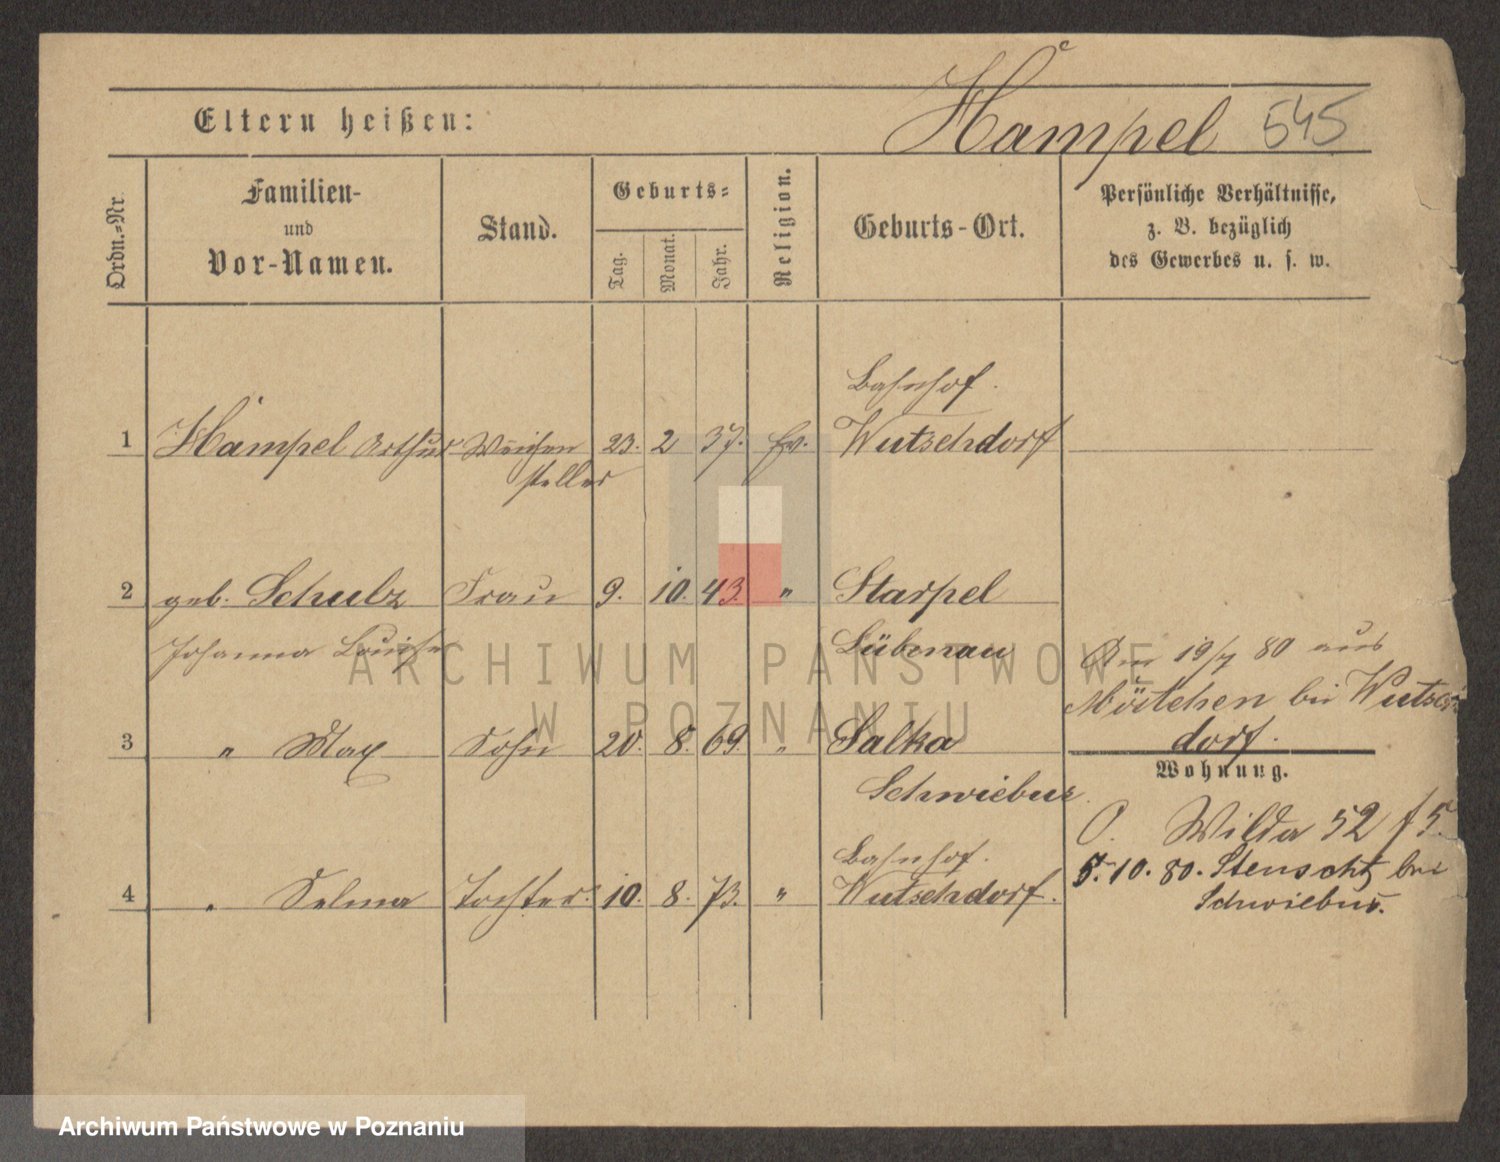 Hampel 545
Eltern heißen:
Ordn.-Nr.
Familien-
und
Vor-Namen.
Stand.
Geburts-
Tag.
Monat.
Jahr.
Religion.
Geburts-Ort.
Persönliche Verhältnisse,
z. B. bezüglich
des Gewerbes u. s. w.
Bahnhof.
1 Hampel Arthur Weichen 23. 2 37. Ev. Wutschdorf
steller
2 geb. Schulz Frau 9. 10. 43. " Starpel
Johanna Louise Lübenau
Am 19/7 80 aus
Möstchen bei Wutsch
dorf.
3 " Max Sohn 20. 8. 69. " Salka
Schwiebus.
Wohnung.
O. Wilda 52 f 5.
Bahnhof.
4 " Selma Tochter 10. 8. 73. " Wutschdorf.
5. 10. 80. Stenscht bei
Schwiebus.
ARCHIWUM PAŃSTWOWE
W POZNANIU
Archiwum Państwowe w Poznaniu